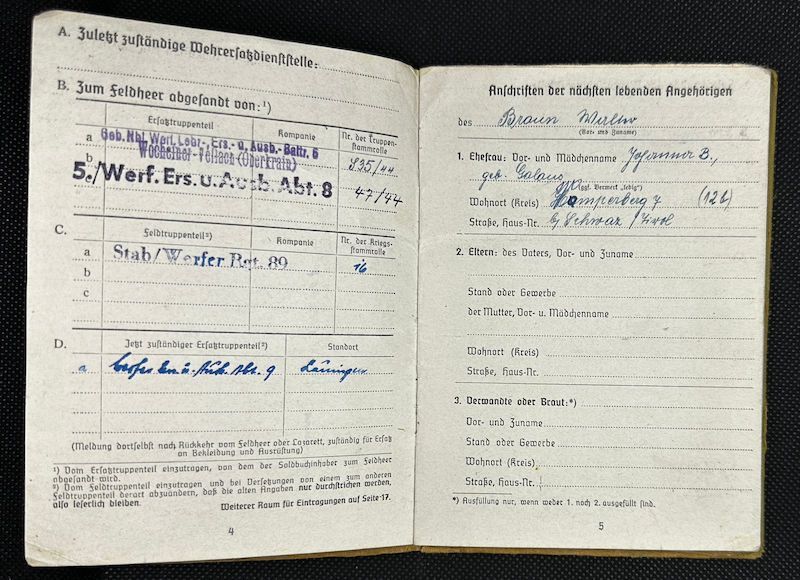 A. Zuletzt zuständige Wehrersatzdienststelle:
B. Zum Feldheer abgesandt von:¹)
Ersatztruppenteil
Kompanie
Nr. der Truppen-
stammrolle
a Geb. Nbl. Werf. Lehr-, Ers.- u. Ausb.- Battr. 6
535/44
b Wocheiner-Vellach (Oberkrain)
5./Werf. Ers. u. Ausb. Abt. 8
47/44
C.
Feldtruppenteil²)
Kompanie
Nr. der Kriegs-
stammrolle
a Stab/Werfer Rgt. 89
16
b
c
D.
Jetzt zuständiger Ersatztruppenteil²)
Standort
a Werfer Ers. u. Ausb. Abt. 9
(Meldung dortselbst nach Rückkehr vom Feldheer oder Lazarett, zuständig für Ersatz
an Bekleidung und Ausrüstung)
¹) Vom Ersatztruppenteil einzutragen, von dem der Soldbuchinhaber zum Feldheer
abgesandt wird.
²) Vom Feldtruppenteil einzutragen und bei Versetzungen von einem zum anderen
Feldtruppenteil derart abzuändern, daß die alten Angaben nur durchstrichen werden,
also leserlich bleiben.
Weiterer Raum für Eintragungen auf Seite 17.
4
Anschriften der nächsten lebenden Angehörigen
des Braun Werner
(Vor- und Zuname)
1. Ehefrau: Vor- und Mädchenname Johanna B.,
geb.
(ggf. Vermerk „ledig")
Wohnort (Kreis) 7 (12b)
Straße, Haus-Nr. b/ Schwaz / Tirol
2. Eltern: des Vaters, Vor- und Zuname
Stand oder Gewerbe
der Mutter, Vor- u. Mädchenname
Wohnort (Kreis)
Straße, Haus-Nr.
3. Verwandte oder Braut:*)
Vor- und Zuname
Stand oder Gewerbe
Wohnort (Kreis)
Straße, Haus-Nr.
*) Ausfüllung nur, wenn weder 1. noch 2. ausgefüllt sind.
5